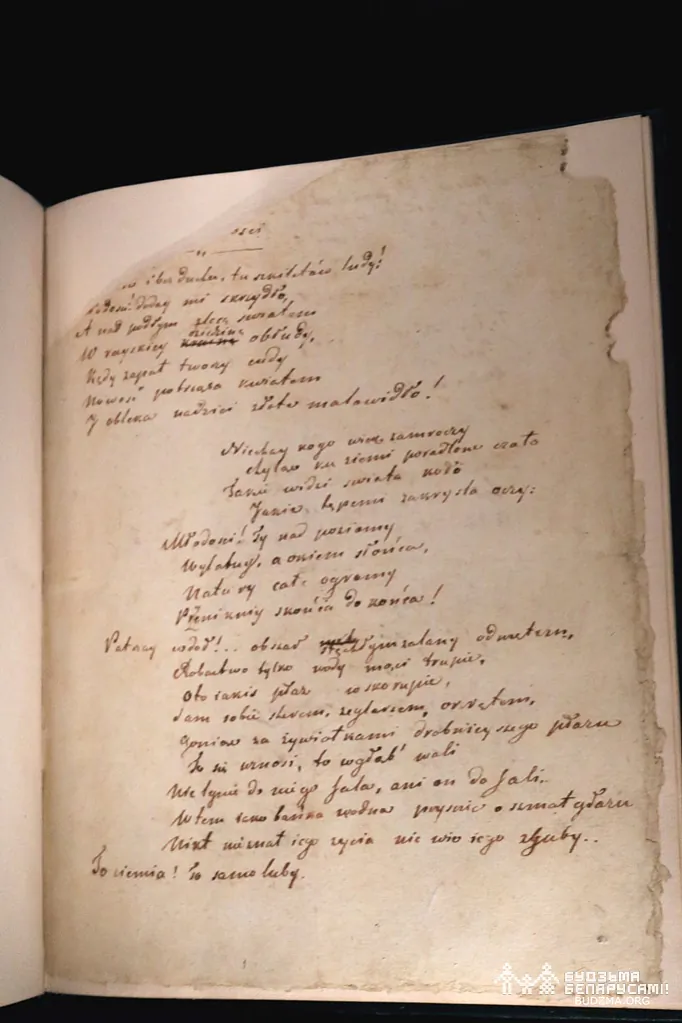 ości
bez ducha, to szkieletów ludy!
dodaj mi skrzydła,
A nad podłym zlecę światem
W rayskiey dziedzinę obłudy,
Kędy zapał tworzy cudy
Nowość potrząsa kwiatem
I obleka nadziei złote malowidło!
Niechay kogo wiek zamroczy
Chyląc ku ziemi poradlone czoło
Takie widzi świata koło
Jakie tępemi zakryśla oczy:
Młodości! Ty nad poziomy
Wylatuy, a okiem słońca,
Natury całe ogromy
Przeniknij z końca do końca!
Patrzay wdół!.. obszar zalany odmętem,
Robactwo tylko wody mąci trupie,
Oto iakiś płaz w skorupie,
Sam sobie sterem, żeglarzem, okrętem,
Goniąc za żywiołkami drobnieyszego płazu
To się wznosi, to wgłąb wali
Nie lgnie do niego fala, ani on do fali.
Wtem iako bańka prysnie o szmat głazu
Nikt nieznał iego życia nie wie iego zguby..
To ziemia! To samoluby.
БУДЗЬМА
БЕЛАРУСАМІ!
BUDZMA.ORG